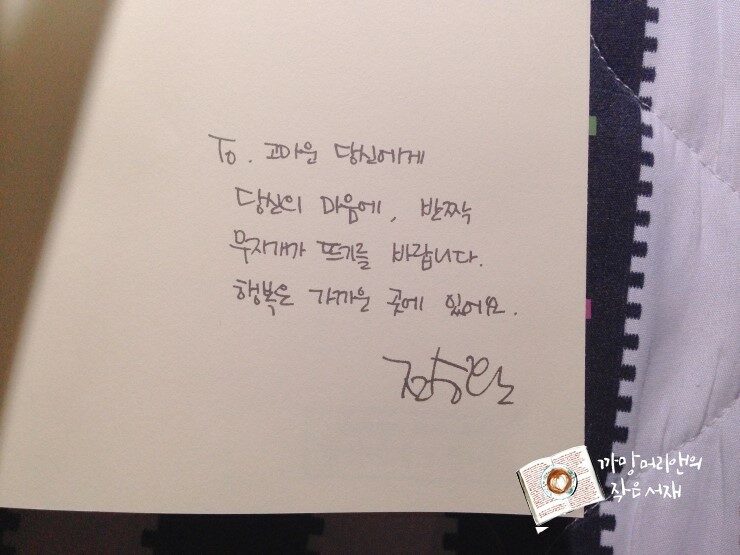 To. 고마운 당신에게
당신의 마음에, 반짝
무지개가 뜨기를 바랍니다.
행복은 가까운 곳에 있어요.
까망머리앤의
작은서재